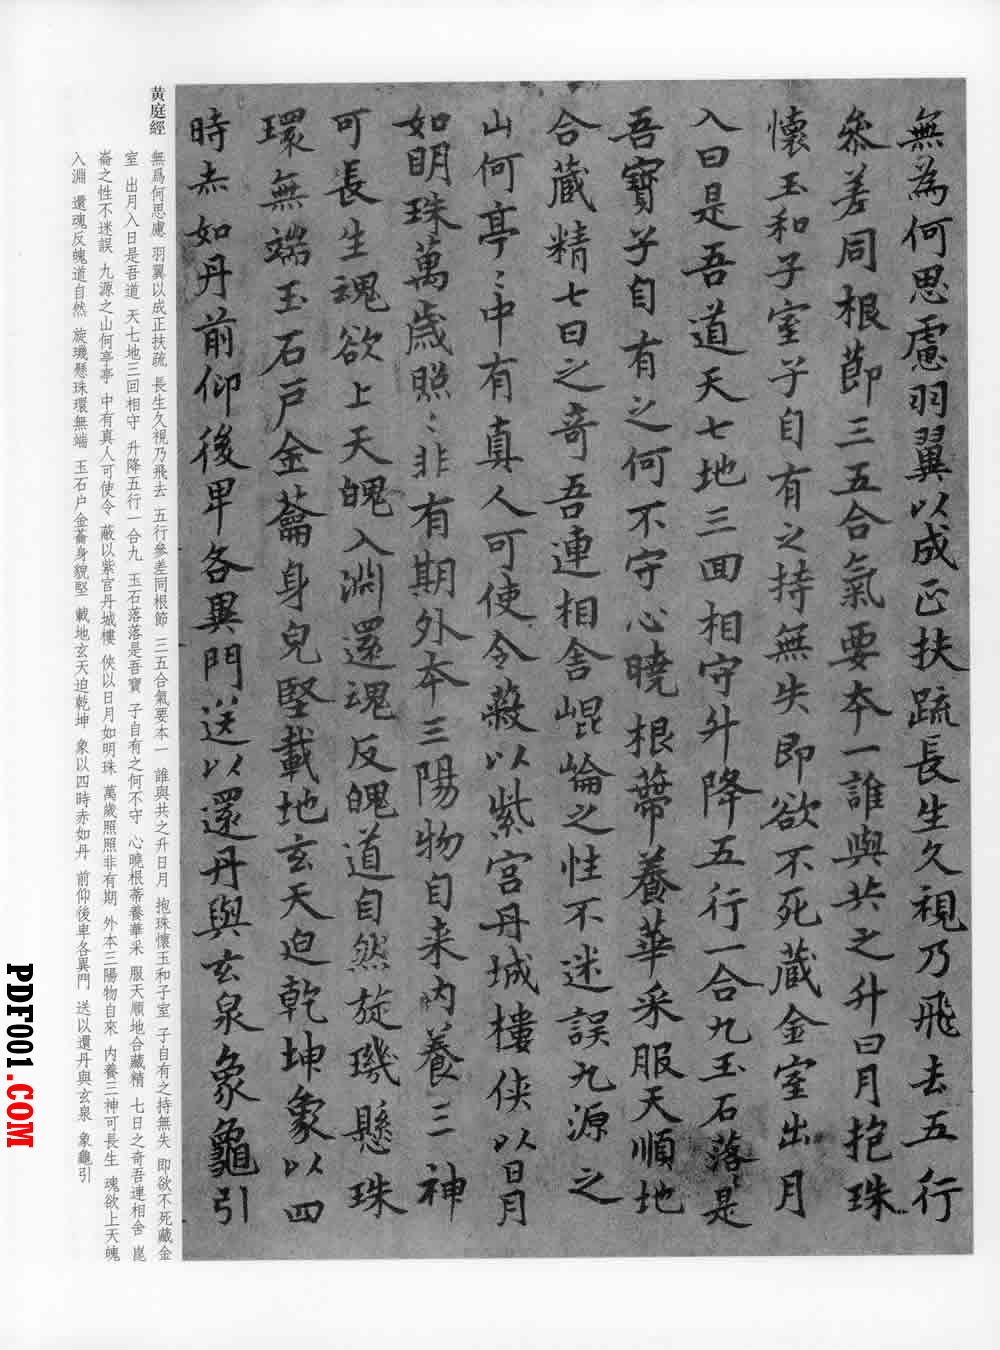 無為何思慮羽翼以成正扶疏長生久視乃飛去五行
參差同根節三五合氣要本一誰與共之升日月抱珠
懷玉和子室子自有之持無失即欲不死藏金室出月
入日是吾道天七地三回相守升降五行一合九玉石落〻是
吾寶子自有之何不守心曉根蔕養華采服天順地
合藏精七日之奇吾連相舍崐崘之性不迷誤九源之
山何亭〻中有真人可使令蔽以紫宫丹城樓侠以日月
如明珠萬歲照〻非有期外本三陽物自来内養三神
可長生魂欲上天魄入淵還魂反魄道自然旋璣懸珠
環無端玉石戸金蘥身皃堅載地玄天迫乾坤象以四
時赤如丹前仰後卑各異門送以還丹與玄泉象龜引
黃庭經
無爲何思慮 羽翼以成正扶疏 長生久視乃飛去 五行參差同根節 三五合氣要本一 誰與共之升日月 抱珠懷玉和子室 子自有之持無失 即欲不死藏金
室 出月入日是吾道 天七地三回相守 升降五行一合九 玉石落落是吾寶 子自有之何不守 心曉根蒂養華采 服天順地合藏精 七日之奇吾連相舍 崑
崙之性不迷誤 九源之山何亭亭 中有真人可使令 蔽以紫宮丹城樓 俠以日月如明珠 萬歲照照非有期 外本三陽物自來 内養三神可長生 魂欲上天魄
入淵 還魂反魄道自然 旋璣懸珠環無端 玉石户金蘥身貌堅 載地玄天迫乾坤 象以四時赤如丹 前仰後卑各異門 送以還丹與玄泉 象龜引
PDF001.COM